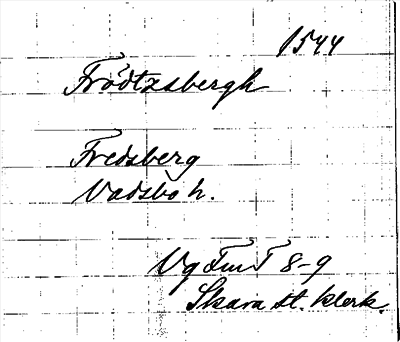 1544
Frödtzsbergh
Fredsberg
Vadsbo h.
Vg FmT 8-9
Skara st. klerk.